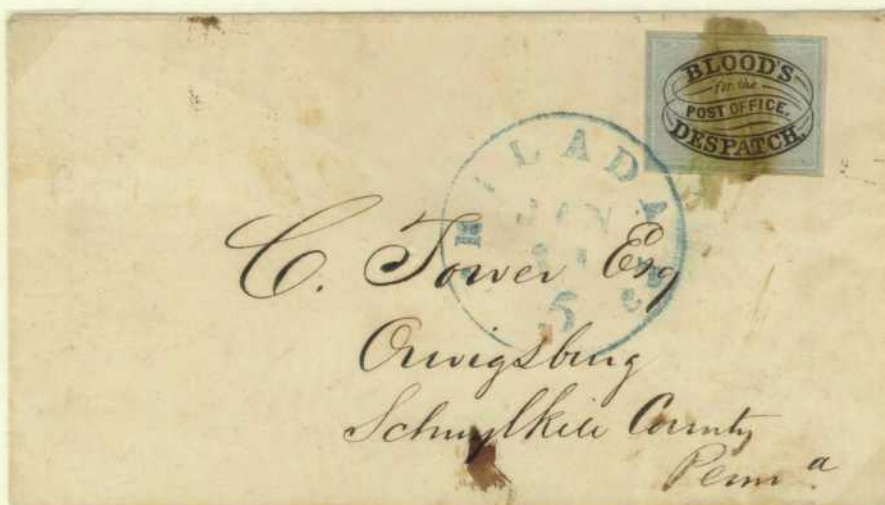 BLOOD'S
for the
POST OFFICE.
DESPATCH.
PHILADA Pa
JAN
5
C. Tower Esq
Orwigsburg
Schuylkill County
Penna